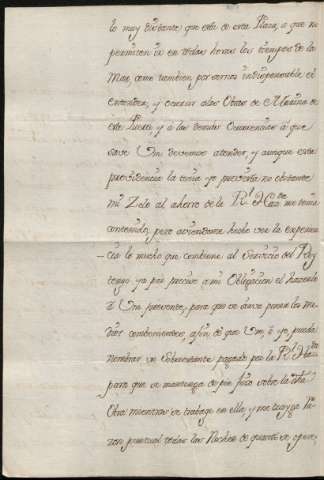 lo muy distante que está de esta Plaza, a que no
permiten ir en todas horas los tiempos de la
Mar, como tambien por sernos indispensable el
entender, y correr a las Obras de Marina de
este Puerto y á las demas Ocurrencias á que
save Vm devemos atender, y aunque esta
providencia la tenia yo prevista no obstante
mi Zelo al ahorro de la Rl. Hacda me tenia
contenido, pero aviendome hecho ver la experien
cia lo mucho que combiene al Servicio del Rey
tengo ya por preciso a mi Obligacion el hacerlo
á Vm presente, para que se sirva poner los me
dios combenientes, afin de que Vm, ó yo pueda
nombrar un Sobrestante pagado por la Rl. Hacda
para que se mantenga de pie fixo sobre la dha
Obra mientras se trabaje en ella y me trayga la ra
zon puntual todas las Noches de quanto se opera,